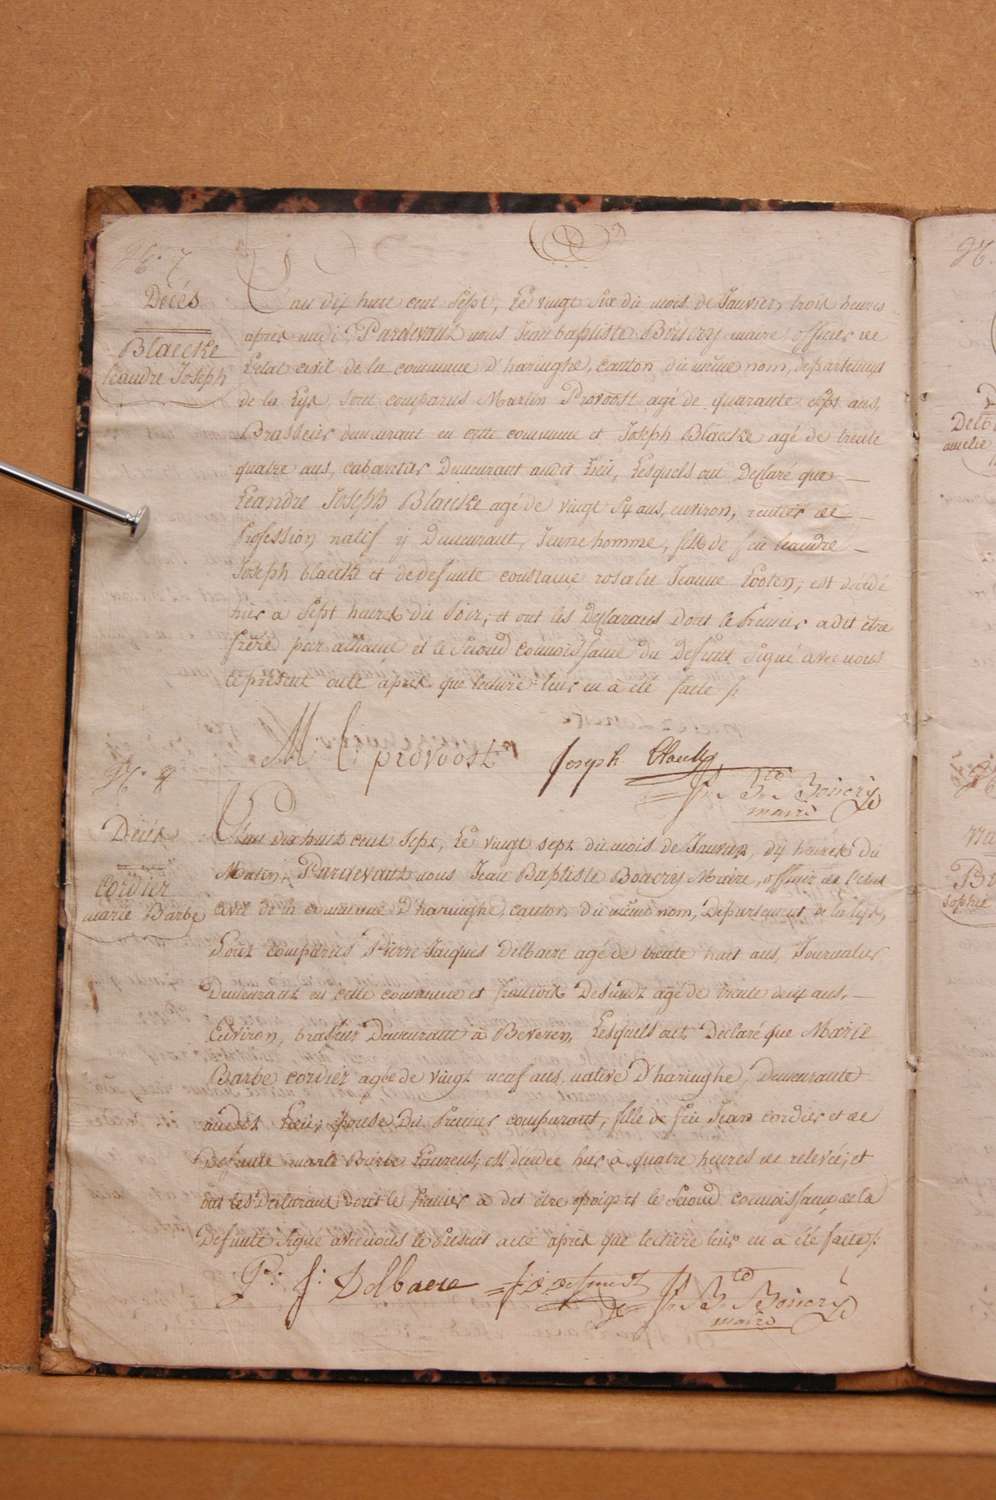 N.° 7
Décès
Blaecke
Leandre Joseph
L'an dix huit cent Sept, Le vingt six du mois de Janvier, trois heures
apres midi, Pardevant nous Jean baptiste Boucry maire officier de
L'etat civil de la commune d'haringhe, canton du même nom, departement
de la Lys, Sont comparus Martin Provoost agé de quarante Sept ans,
Brasseur demeurant en cette commune et Joseph Blaecke agé de trente
quatre ans, cabartier Demeurant audit Lieu, Lesquels ont Declaré que
Leandre Joseph Blaecke agé de vingt ans, environ, rentier de
Profession natif y Demeurant, Jeune homme, fils de feu Leandre
Joseph blaecke et de defunte constance rosalie Jeanne Looten, est decedé
hier a Sept heures du Soir, et ont les Declarans dont le Premier a dit être
frère par alliance et le Second connoissance du Defunt Signé avec nous
le présent acte après que lecture leur en a été faite /.
M: L: provoost
Joseph Blaecke
J. B.te Boucry
maire
N.° 8
Décès
Cordier
marie Barbe
L'an dix huit cent Sept, Le vingt sept du mois de Janvier, dix heures du
Matin, Pardevant nous Jean Baptiste Boucry Maire, officier de l'etat
civil de la commune D'haringhe, canton du même nom, Departement de la Lys,
Sont comparus Pierre Jacques Delbaere agé de trente huit ans, Journalier
Demeurant en cette commune et francois Desmedt agé de trente deux ans,
Environ, brasseur Demeurant à Beveren, Lesquels ont Declaré que Marie
Barbe Cordier agée de vingt neuf ans, native D'haringhe, Demeurante
audit Lieu, épouse Du Premier comparant, fille de feu Jean Cordier et de
Defunte marie Barbe Laurens, est decedée hier à quatre heures de relevée, et
ont les Declarans dont le Premier à dit être epoux et le Second connoissance de la
Defunte Signé avec nous le Présent acte après que lecture leur en a été faite /.
P: J: Delbaere
desmedt
J. B.te Boucry
maire
N.
Marie
Sophie